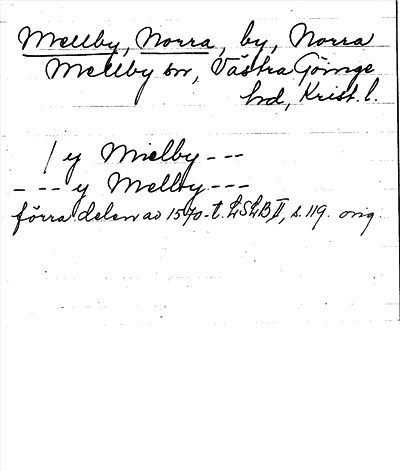 Mellby, Norra, by, Norra
Mellby sn, Västra Göinge
hd, Krist. l.
/ y Mielby ---
--- y Mellby ---
förra delen av 1570-t. LSLB II, s. 119. orig.